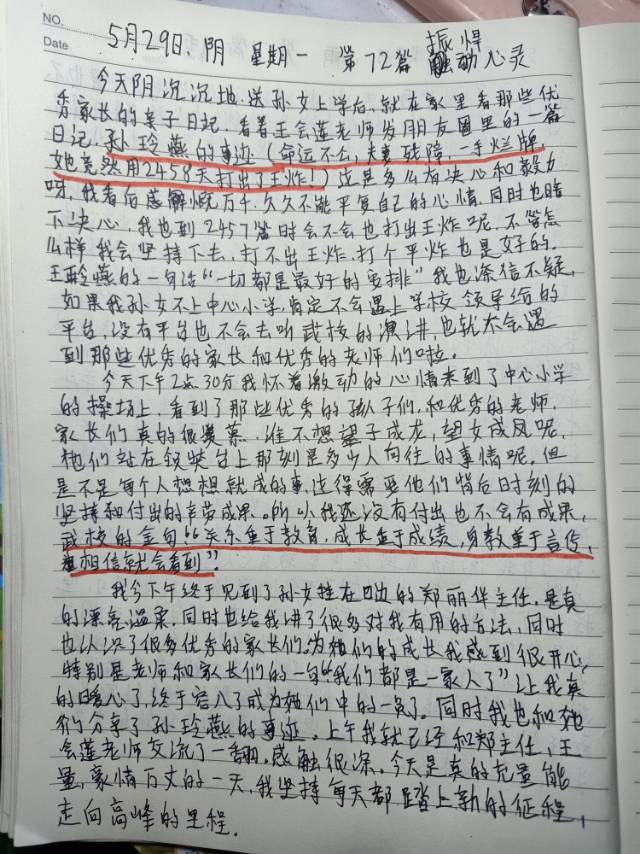 NO.
Date
5月29日 阴 星期一 第72篇 振悍
触动心灵
今天阴沉沉地,送孙女上学后,就在家里看那些优
秀家长的亲子日记,看着王会莲老师发朋友圈里的一篇
日记,孙玲燕的事迹(命运不公,夫妻残障,一手烂牌,
她竟然用2458天打出了王炸!)这是多么有决心和毅力
呀,我看后感慨万千,久久不能平复自己的心情,同时也暗
下决心,我也到2457篇时会不会也打出王炸呢,不管怎
么样我会坚持下去,打不出王炸,打个平炸也是好的。
王聆燕的一句话“一切都是最好的安排”我也深信不疑,
如果我孙女不上中心小学,肯定不会遇上学校领导给的
平台,没有平台也不会去听武校的演讲,也就不会遇
到那些优秀的家长和优秀的老师们啦。
今天下午2点30分我怀着激动的心情来到了中心小学
的操场上,看到了那些优秀的孩子们,和优秀的老师,
家长们真的很羡慕,谁不想望子成龙,望女成凤呢,
他们站在领奖台上那刻是多少人向往的事情呢。但
是不是每个人想想就成的事,这得需要他们背后时刻的
坚持和付出的辛劳成果。所以我还没有付出也不会有成果,
武校的金句“关系重于教育,成长重于成绩,身教重于言传,
相信就会看到”。
我今下午终于见到了孙女姓在口边的郑丽伴主任,是真
的漂亮温柔,同时也给我讲了很多对我有用的方法,同时
也认识了很多优秀的家长们。为她们的成长我感到很开心,
特别是老师和家长们的一句“我们都是一家人了”让我真
的暖心了,终于容入了成为她们中的一员了。同时我也和她
们分享了孙玲燕的事迹。上午我就已经和郑主任,王
会莲老师交流了一翻,感触很深。今天是真的充量能
量,豪情万丈的一天,我坚持每天都踏上新的征程,
走向高峰的里程。